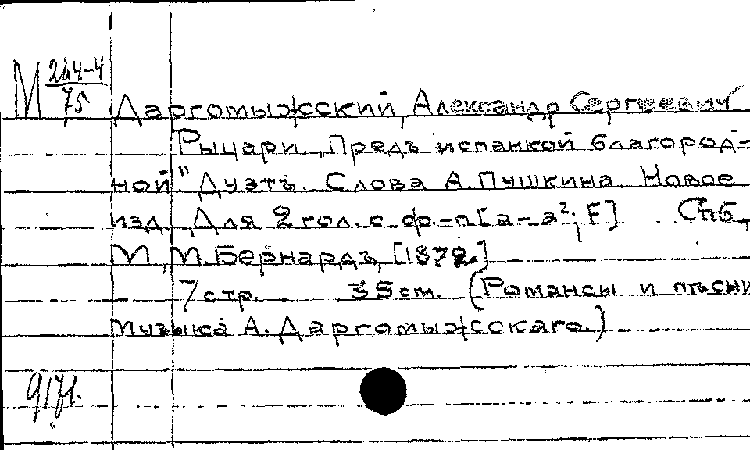 М 244-4/75
Даргомыжский, Александр Сергеевич
Рыцари. „Предъ испанкой благород-
ной" Дуэтъ. Слова А. Пушкина. Новое
изд. Для 2 гол. с ф.-п. [a-a²; F] Спб.,
М. Бернардъ, [1872.]
7 стр. 35 см. (Романсы и пѣсни
Музыка А. Даргомыжскаго.)
9171.